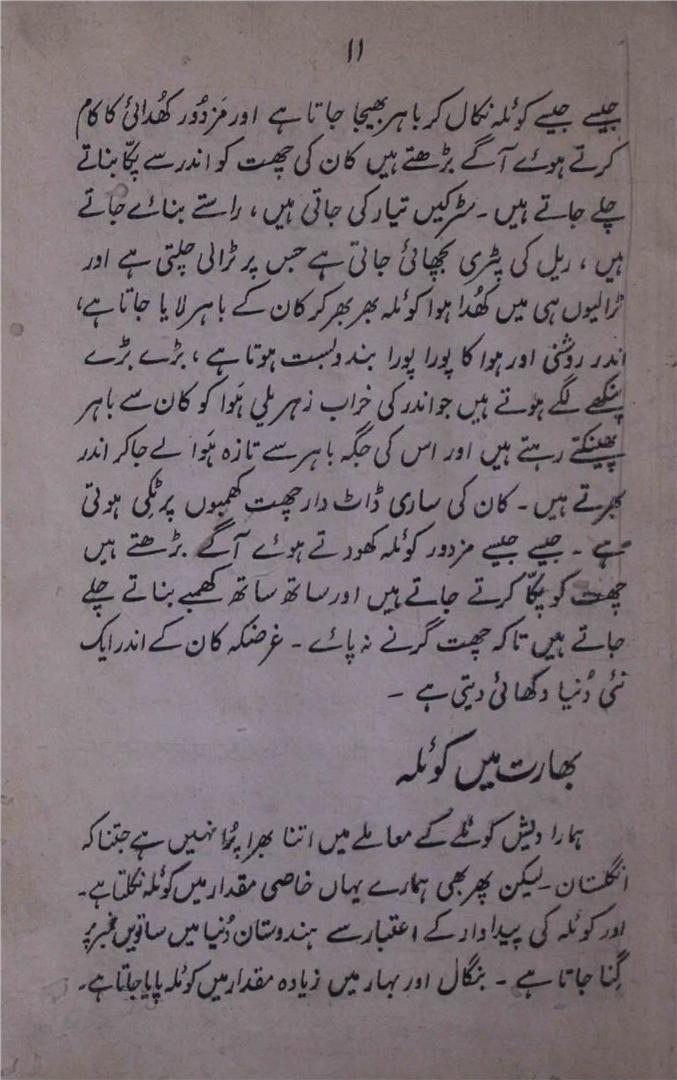 ۱۱
جیسے جیسے کوئلہ نکال کر باہر بھیجا جاتا ہے اور مَزدُور کھُدائی کا کام
کرتے ہوئے آگے بڑھتے ہیں کان کی چھت کو اندر سے پکّا بناتے
چلے جاتے ہیں ۔ سڑکیں تیار کی جاتی ہیں، راستے بنائے جاتے
ہیں، ریل کی پٹری بچھائی جاتی ہے جس پر ٹرالی چلتی ہے اور
ٹرالیوں ہی میں کھُدا ہوا کوئلہ بھر بھر کر کان کے باہر لایا جاتا ہے،
اندر روشنی اور ہوا کا پورا پورا بندوبست ہوتا ہے، بڑے بڑے
پنکھے لگے ہوتے ہیں جو اندر کی خراب زہریلی ہَوا کو کان سے باہر
پھینکتے رہتے ہیں اور اس کی جگہ باہر سے تازہ ہَوا لے جا کر اندر
بھرتے ہیں ۔ کان کی ساری ڈاٹ دار چھت کھمبوں پر ٹِکی ہوتی
ہے ۔ جیسے جیسے مزدور کوئلہ کھودتے ہوئے آگے بڑھتے ہیں
چھت کو پکّا کرتے جاتے ہیں اور ساتھ ساتھ کھمبے بناتے چلے
جاتے ہیں تاکہ چھت گرنے نہ پائے ۔ غرضکہ کان کے اندر ایک
نئی دُنیا دکھائی دیتی ہے ۔
بھارت میں کوئلہ
ہمارا دیش کوئلے کے معاملے میں اتنا بھرا پُرا نہیں ہے جتنا کہ
انگلستان ۔ لیکن پھر بھی ہمارے یہاں خاصی مقدار میں کوئلہ نکلتا ہے ۔
اور کوئلہ کی پیداوار کے اعتبار سے ہندوستان دُنیا میں ساتویں نمبر پر
گِنا جاتا ہے ۔ بنگال اور بہار میں زیادہ مقدار میں کوئلہ پایا جاتا ہے ۔